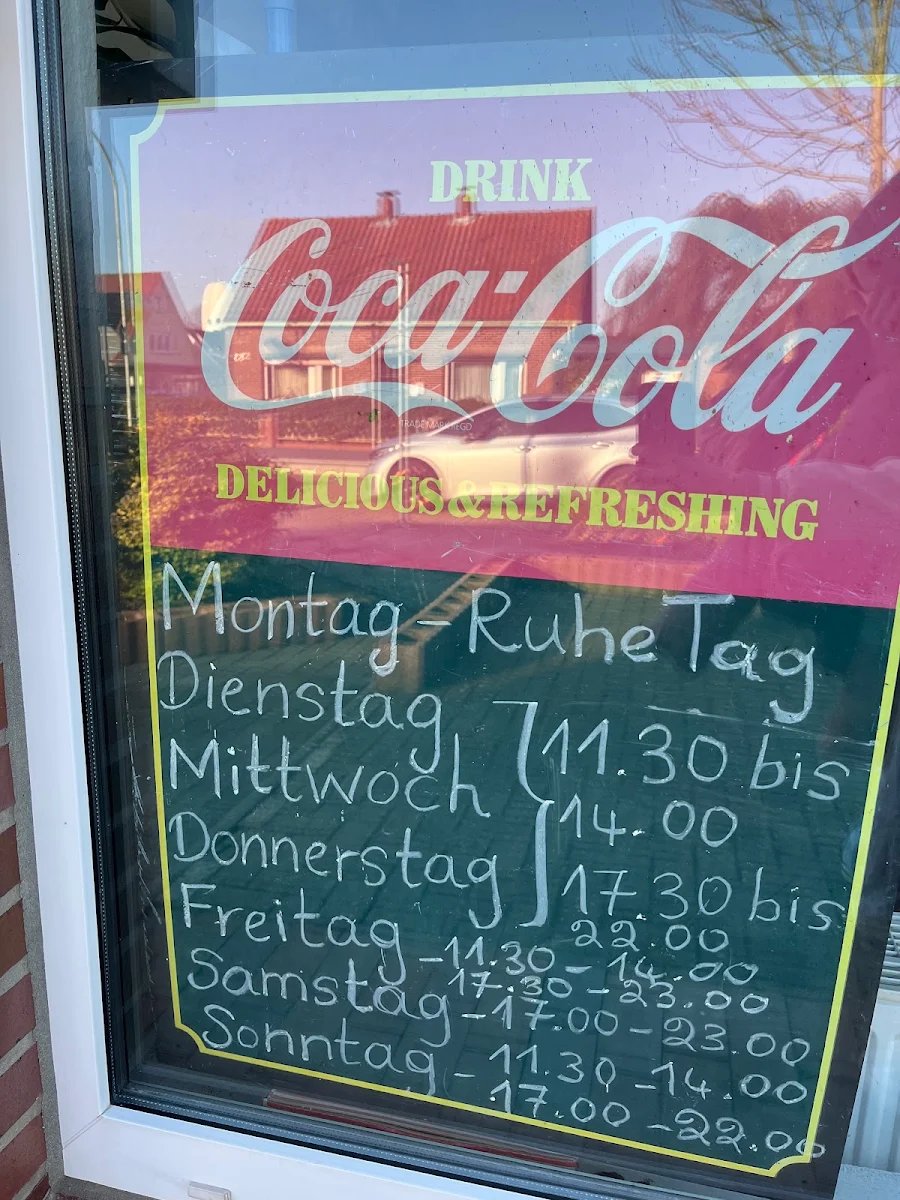 DRINK
Coca-Cola
TRADE MARK REGD
DELICIOUS & REFRESHING
Montag - Ruhe Tag
Dienstag
Mittwoch
Donnerstag
11.30 bis
14.00
17.30 bis
22.00
Freitag - 11.30 - 14.00
17.30 - 23.00
Samstag - 17.00 - 23.00
Sonntag - 11.30 - 14.00
17.00 - 22.00